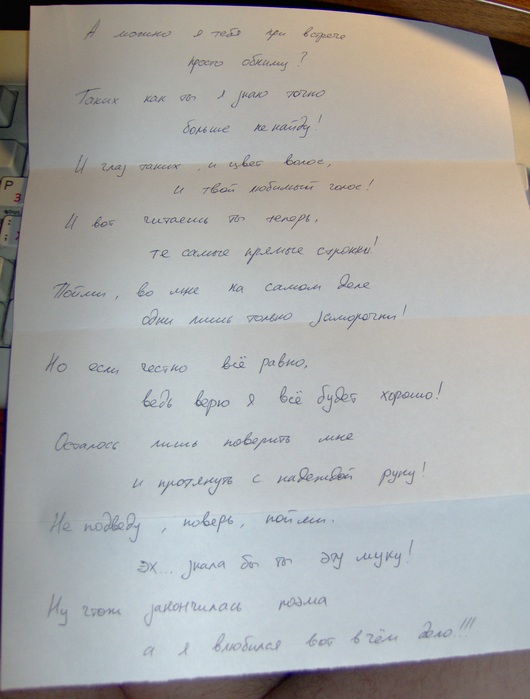 А можно я тебя при встрече
просто обниму?
Таких как ты я знаю точно
больше не найду!
И глаз таких, и цвет волос,
и твой любимый голос!
И вот читаешь ты теперь,
те самые прямые строчки!
Пойми, во мне на самом деле
одни лишь только заморочки!
Но если честно всё равно,
ведь верю я всё будет хорошо!
Осталось лишь поверить мне
и протянуть с надеждой руку!
Не подведу, поверь, пойми.
эх... знала бы ты эту муку!
Ну чтож закончилась поэма
а я влюбился вот в чём дело!!!!